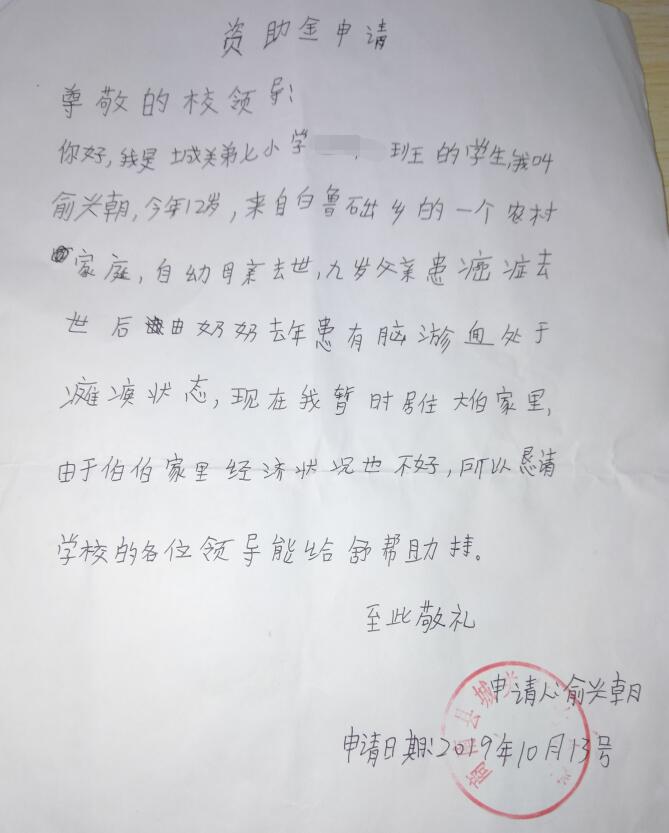 资助金申请
尊敬的校领导!
你好,我是城关弟七小学 班的学生,我叫
俞兴朝,今年12岁,来自白鲁础乡的一个农村
家庭,自幼母亲去世,九岁父亲患癌症去
世后由奶奶去年患有脑渗血处于
瘫痪状态,现在我暂时居住大伯家里,
由于伯伯家里经济状况也不好,所以恳请
学校的各位领导能给舒帮助持。
至此敬礼
申请人俞兴朝
申请日期:2019年10月13号
县城关